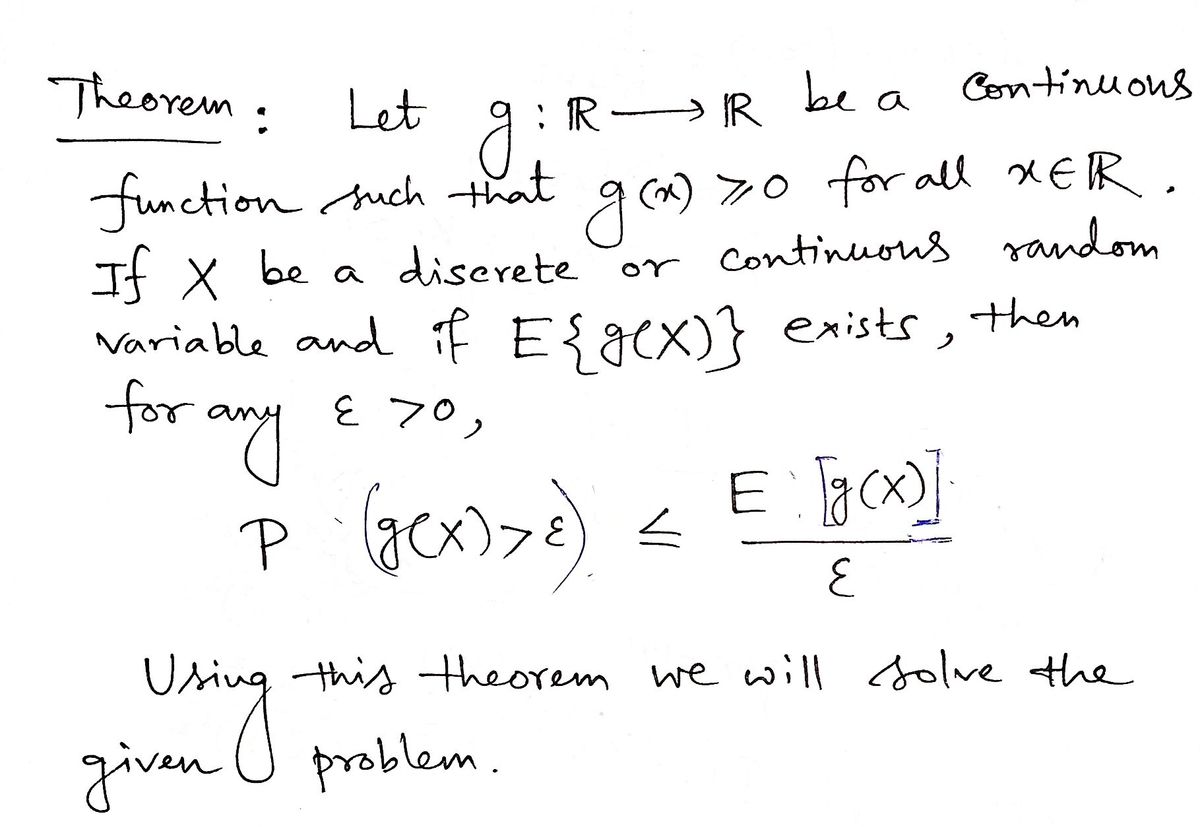 Theorem : Let g : ℝ ⟶ ℝ be a continuous
function such that g(x) ⩾ 0 for all x ∈ ℝ .
If X be a discrete or continuous random
variable and if E{g(X)} exists, then
for any ε > 0,
P (g(X) > ε) ≤ E [g(X)] / ε
Using this theorem we will solve the
given problem.